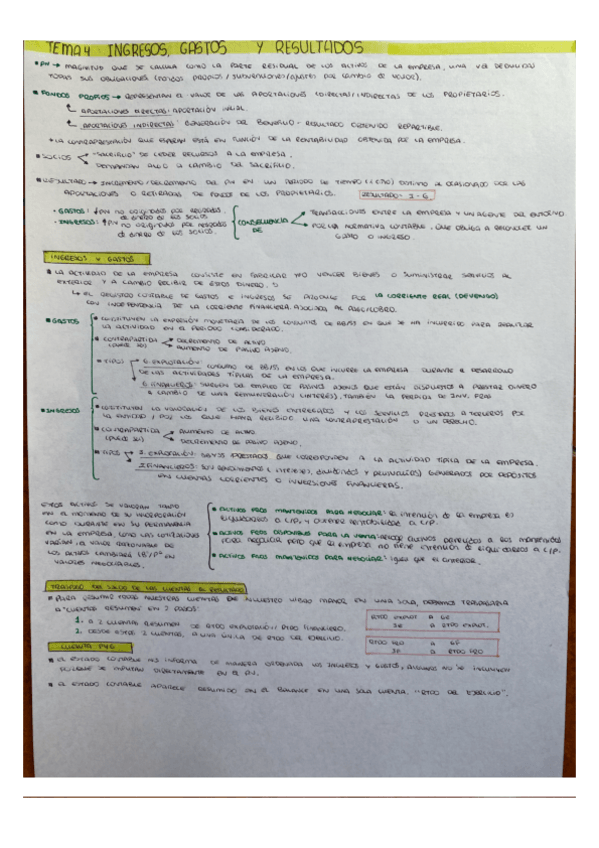 TEMA 4 INGRESOS, GASTOS Y RESULTADOS
• PN → MAGNITUD QUE SE CALCULA COMO LA PARTE RESIDUAL DE LOS ACTIVOS DE LA EMPRESA, UNA VEZ DEDUCIDAS
TODAS SUS OBLIGACIONES (FONDOS PROPIOS / SUBVENCIONES / AJUSTES POR CAMBIO DE VALOR).
• FONDOS PROPIOS → REPRESENTAN EL VALOR DE LAS APORTACIONES (DIRECTAS/INDIRECTAS) DE LOS PROPIETARIOS.
APORTACIONES DIRECTAS: APORTACIÓN INICIAL.
APORTACIONES INDIRECTAS: GENERACIÓN DEL BENEFICIO - RESULTADO OBTENIDO REPARTIBLE.
• LA CONTRAPRESTACIÓN QUE ESPERAN ESTÁ EN FUNCIÓN DE LA RENTABILIDAD OBTENIDA POR LA EMPRESA.
• SOCIOS "SACRIFICIO" DE CEDER RECURSOS A LA EMPRESA.
DEMANDAN ALGO A CAMBIO DEL SACRIFICIO.
• RESULTADO → INCREMENTO / DECREMENTO DEL PN EN UN PERIODO DE TIEMPO DISTINTO AL OCASIONADO POR LAS
APORTACIONES O RETIRADAS DE FONDOS DE LOS PROPIETARIOS. RESULTADO = I - G
• GASTOS: ↓PN NO ORIGINADOS POR RECOGIDAS DE DINERO DE LOS SOCIOS
• INGRESOS: ↑PN NO ORIGINADOS POR DE DINERO DE LOS SOCIOS.
CONSECUENCIA DE
TRANSACCIONES ENTRE LA EMPRESA Y UN AGENTE DEL ENTORNO.
POR LA NORMATIVA CONTABLE, QUE OBLIGA A RECONOCER UN
GASTO O INGRESO.
INGRESOS Y GASTOS
• LA ACTIVIDAD DE LA EMPRESA CONSISTE EN FABRICAR Y/O VENDER BIENES O SUMINISTRAR SERVICIOS AL
EXTERIOR Y A CAMBIO RECIBIR DE ÉSTOS DINERO.
↳ EL REGISTRO CONTABLE DE GASTOS E INGRESOS SE PRODUCE POR LA CORRIENTE REAL (DEVENGO)
CON INDEPENDENCIA DE LA CORRIENTE FINANCIERA ASOCIADA AL
• GASTOS
• CONSTITUYEN LA EXPRESIÓN MONETARIA DE LOS CONSUMOS DE BB/SS EN QUE SE HA INCURRIDO PARA DESARROLLAR
LA ACTIVIDAD EN EL PERIODO CONSIDERADO.
• CONTRAPARTIDA (PUEDE SER) DECREMENTO DE ACTIVO
AUMENTO DE PASIVO AJENO.
• TIPOS G. EXPLOTACIÓN: CONSUMO DE BB/SS EN LO QUE INCURRE LA EMPRESA DURANTE EL DESARROLLO
DE LAS ACTIVIDADES TÍPICAS DE LA EMPRESA.
G. FINANCIEROS: SURGEN DEL EMPLEO DE FONDOS AJENOS QUE ESTÁN DISPUESTOS A PRESTAR DINERO
A CAMBIO DE UNA REMUNERACIÓN (INTERÉS). TAMBIÉN LA PÉRDIDA DE INV. FRAS
• INGRESOS
• CONSTITUYEN LA VALORACIÓN DE LOS BIENES ENTREGADOS Y LOS SERVICIOS PRESTADOS A TERCEROS POR
LA ENTIDAD Y POR LOS QUE HAYA RECIBIDO UNA CONTRAPRESTACIÓN O UN DERECHO.
• CONTRAPARTIDA (PUEDE SER) AUMENTO DE ACTIVO
DECREMENTO DE PASIVO AJENO.
• TIPOS I. EXPLOTACIÓN: QUE CORRESPONDEN A LA ACTIVIDAD TÍPICA DE LA EMPRESA.
I. FINANCIEROS: SON RENDIMIENTOS (INTERESES, DIVIDENDOS Y PLUSVALÍAS) GENERADOS POR DEPÓSITOS
EN CUENTAS CORRIENTES O INVERSIONES FINANCIERAS.
ESTOS ACTIVOS SE VALORAN TANTO
EN EL MOMENTO DE SU INCORPORACIÓN
COMO DURANTE EN SU PERMANENCIA
EN LA EMPRESA, COMO LAS COTIZACIONES
VARÍAN EL VALOR RAZONABLE DE
LOS ACTIVOS CAMBIARÁ (B/P) EN
VALORES NEGOCIABLES.
• ACTIVOS FROS MANTENIDOS PARA NEGOCIAR: LA INTENCIÓN DE LA EMPRESA ES
A C/P, Y OBTENER RENTABILIDAD A C/P.
• ACTIVOS FROS DISPONIBLES PARA LA VENTA: ACTIVOS PARECIDOS A LOS MANTENIDOS
PARA NEGOCIAR PERO QUE LA EMPRESA NO TIENE INTENCIÓN DE A C/P.
• ACTIVOS FROS MANTENIDOS PARA NEGOCIAR: IGUAL QUE EL ANTERIOR.
TRASPASO DEL SALDO DE LAS CUENTAS AL RESULTADO
• PARA TODAS NUESTRAS CUENTAS DE NUESTRO LIBRO MAYOR EN UNA SOLA, DEBEMOS TRASPASARLA
A "CUENTAS RESUMEN" EN 2 PASOS:
1. A 2 CUENTAS RESUMEN DE RTDO EXPLOTACIÓN / RTDO FINANCIERO.
2. DESDE ESTAS 2 CUENTAS, A UNA ÚNICA DE RTDO DEL EJERCICIO.
RTDO EXPLOT A GE
IE A RTDO EXPLOT.
RTDO FRO A GF
IF A RTDO FRO
CUENTA PYG
• EL ESTADO CONTABLE NOS INFORMA DE MANERA ORDENADA LOS INGRESOS Y GASTOS, ALGUNOS NO SE INCLUYEN
PORQUE SE IMPUTAN DIRECTAMENTE EN EL PN.
• EL ESTADO CONTABLE APARECE RESUMIDO EN EL BALANCE EN UNA SOLA CUENTA. "RTDO DEL EJERCICIO".